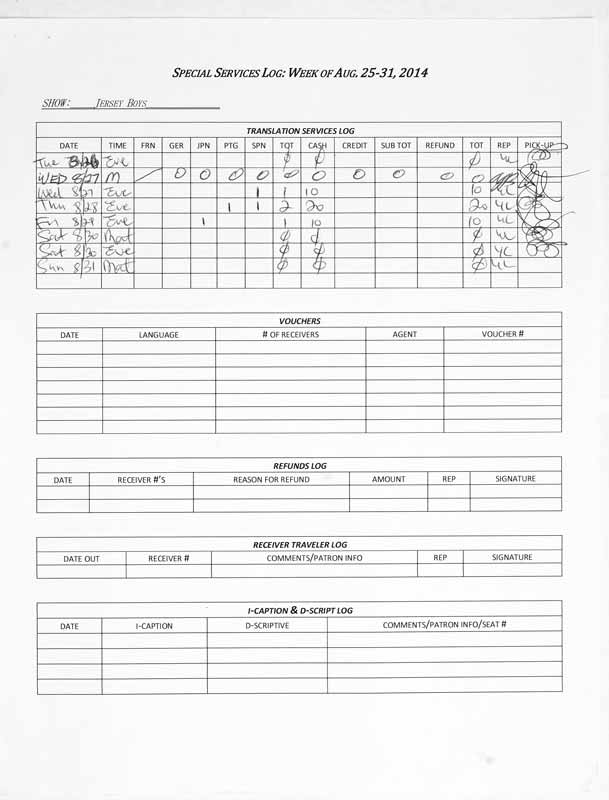 SPECIAL SERVICES LOG: WEEK OF AUG. 25-31, 2014
SHOW: JERSEY BOYS
TRANSLATION SERVICES LOG
DATE TIME FRN GER JPN PTG SPN TOT CASH CREDIT SUB TOT REFUND TOT REP PICK-UP
Tue 8/26 Eve ∅ ∅ ∅ YL
WED 8/27 M / 0 0 0 0 0 0 0 0 0 0
Wed 8/27 Eve 1 1 10 10 YL
Thu 8/28 Eve 1 1 2 20 20 YL
Fri 8/29 Eve 1 1 10 10 YL
Sat 8/30 Mat ∅ ∅ ∅ YL
Sat 8/30 Eve ∅ ∅ ∅ YL
Sun 8/31 Mat ∅ ∅ ∅ YL
VOUCHERS
DATE LANGUAGE # OF RECEIVERS AGENT VOUCHER #
REFUNDS LOG
DATE RECEIVER #'S REASON FOR REFUND AMOUNT REP SIGNATURE
RECEIVER TRAVELER LOG
DATE OUT RECEIVER # COMMENTS/PATRON INFO REP SIGNATURE
I-CAPTION & D-SCRIPT LOG
DATE I-CAPTION D-SCRIPTIVE COMMENTS/PATRON INFO/SEAT #